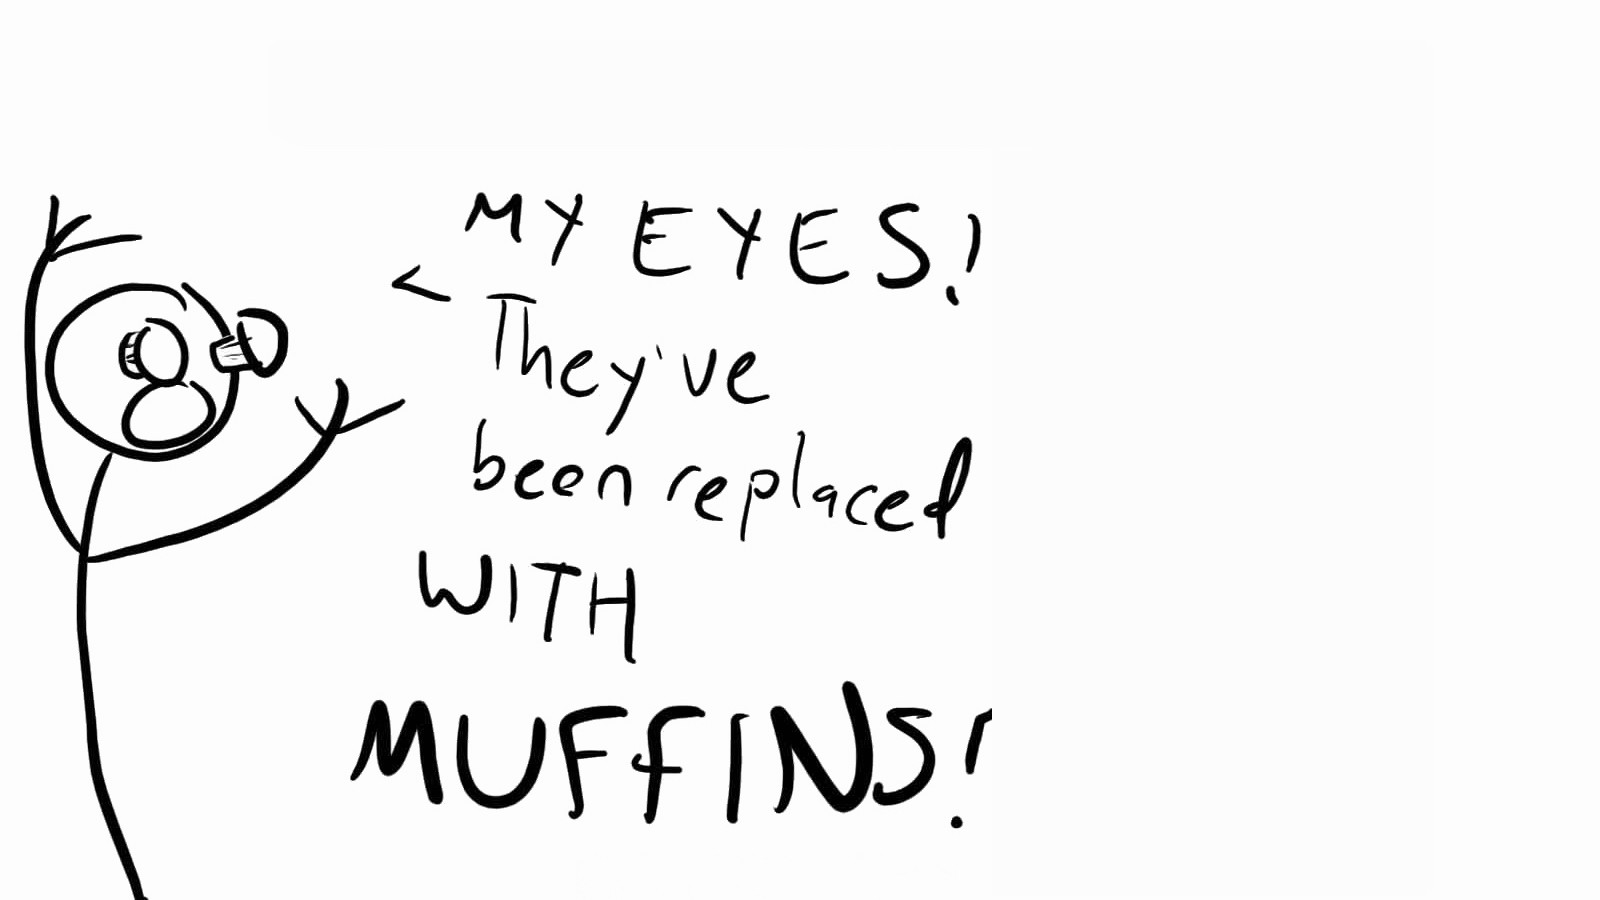 MY EYES!
They've
been replaced
WITH
MUFFINS!